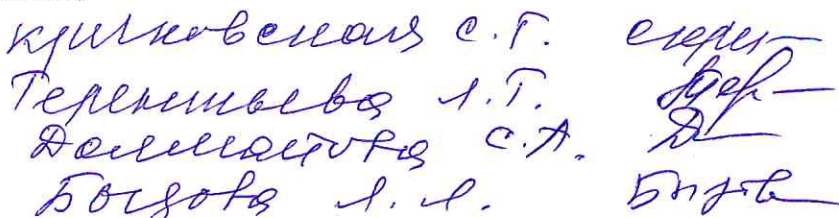 Кричковская С.Г.
Терентьева Л.Г.
Долматова С.А.
Быдова Л.Л.